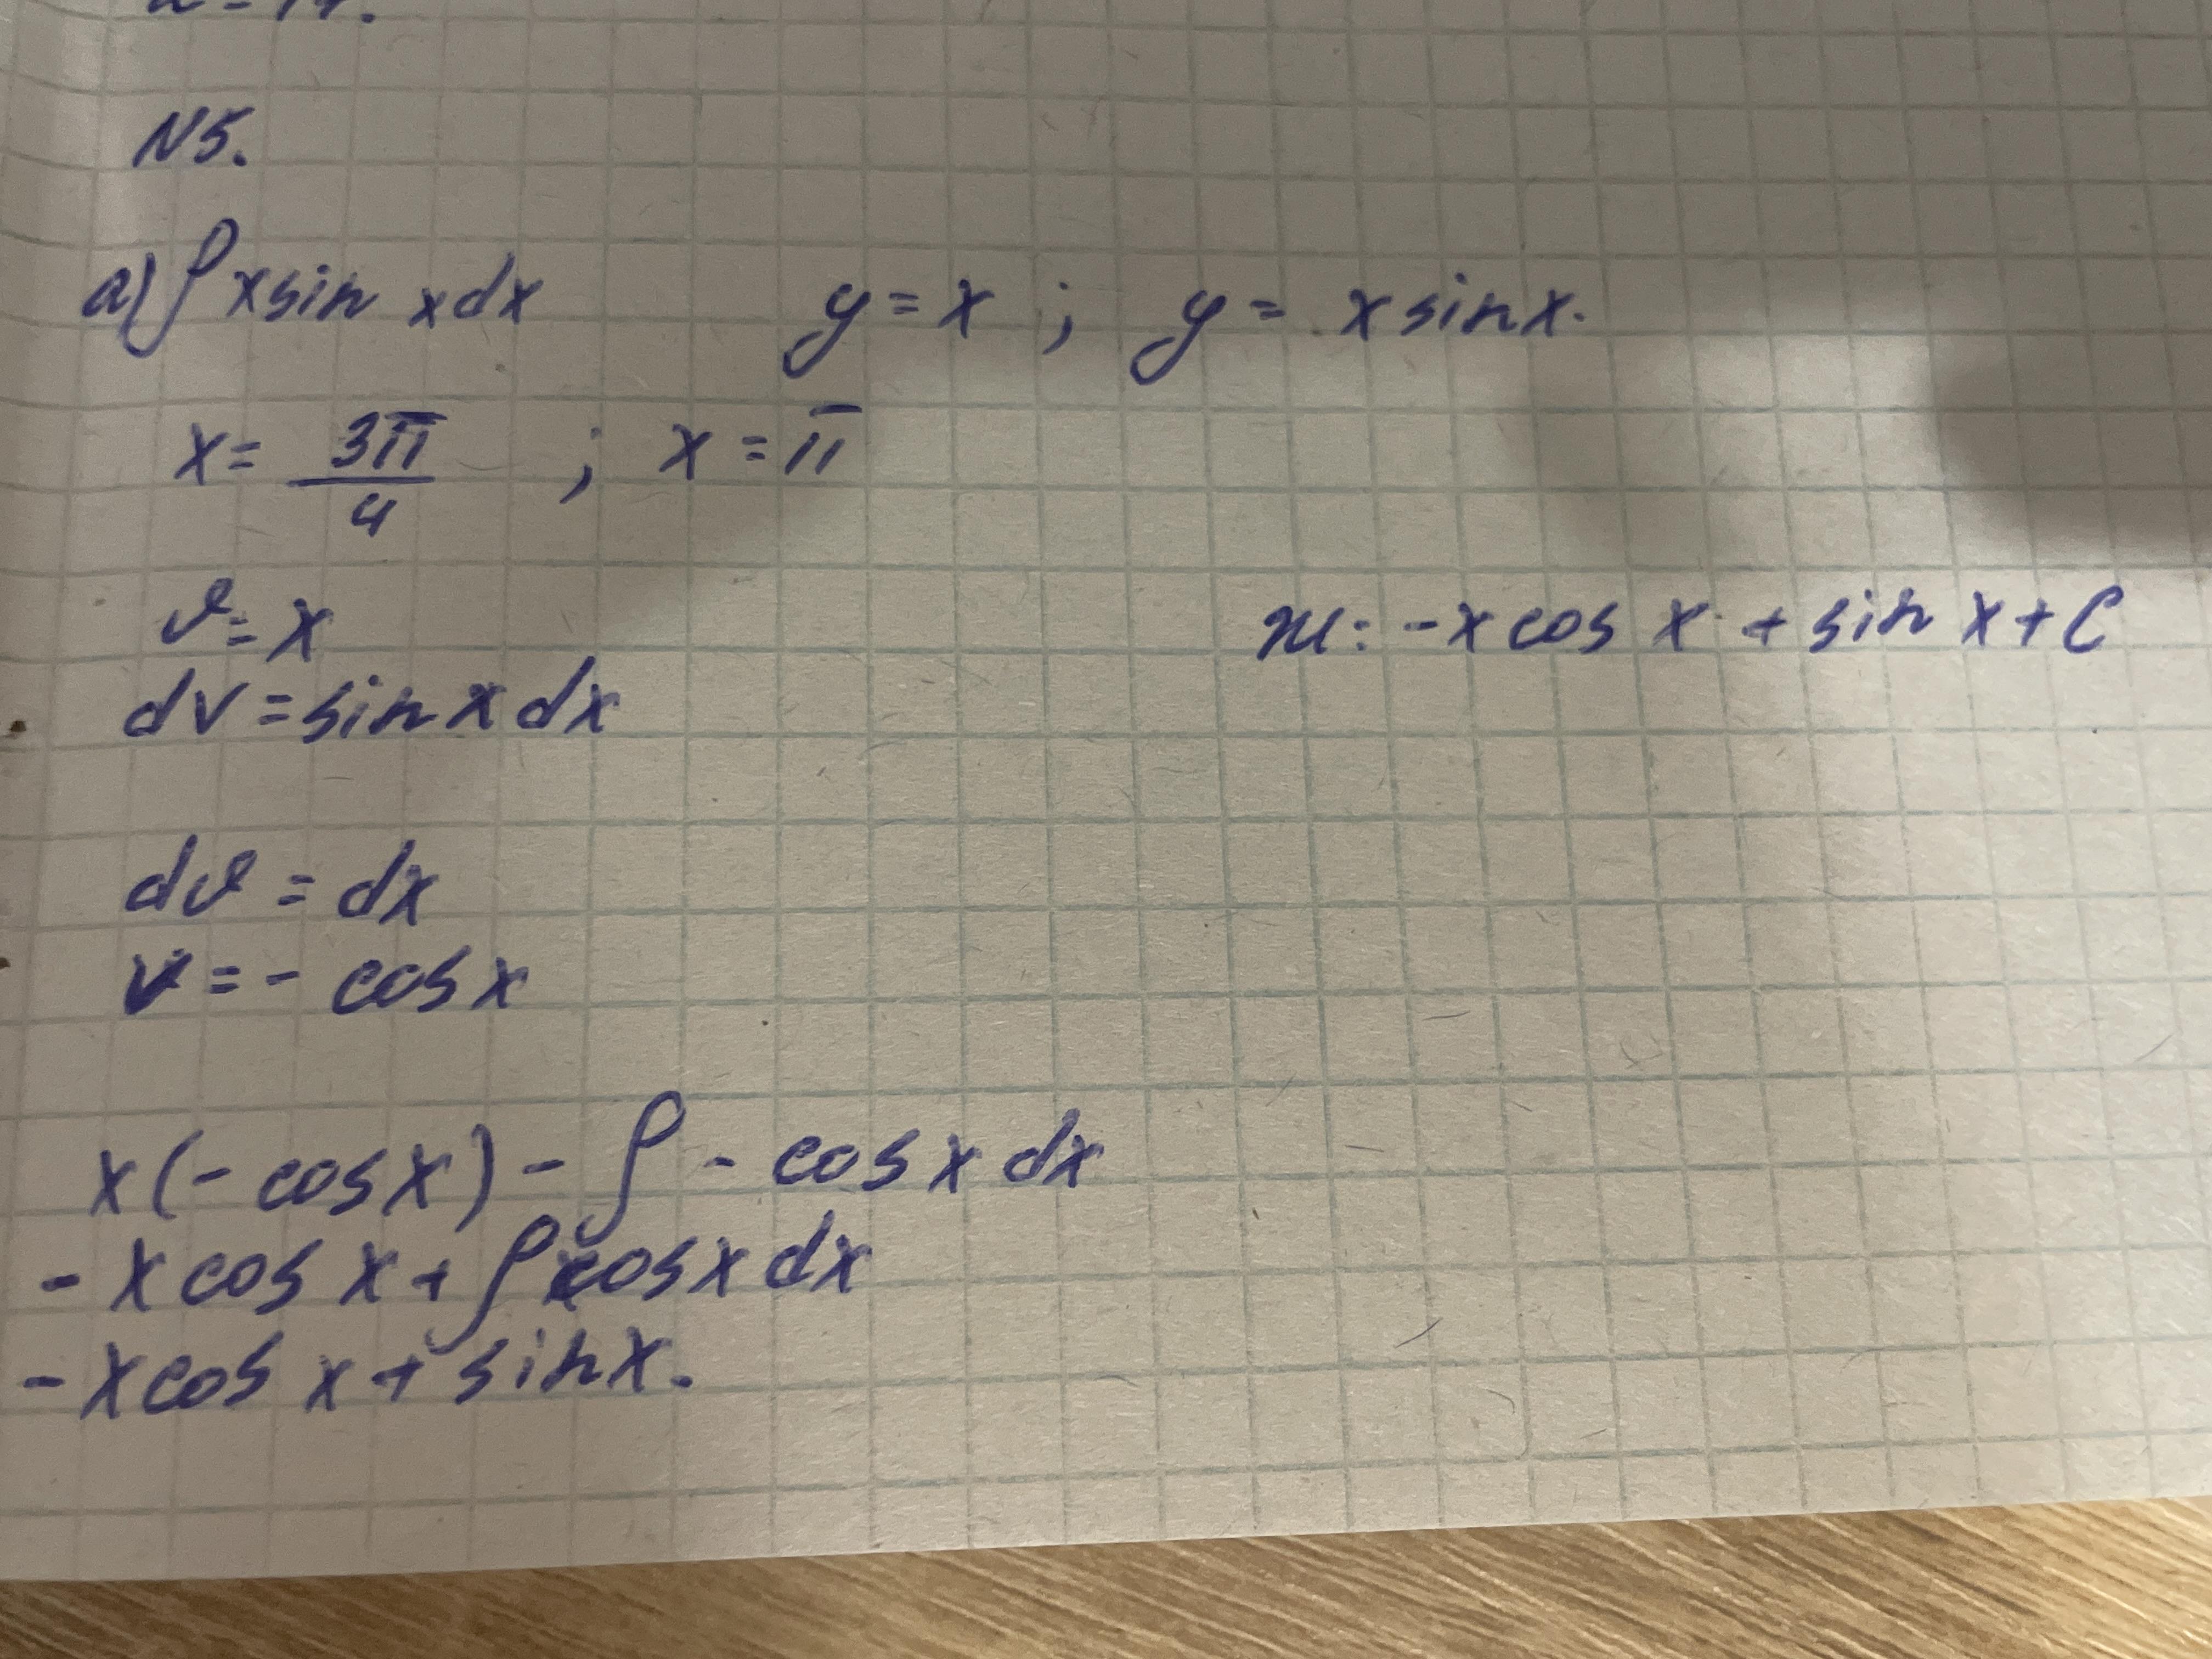 N5.
a) ∫ x sin x dx y = x ; y = x sin x.
x = 3π/4 ; x = π
𝜗 = x
dv = sin x dx
: -x cos x + sin x + C
d𝜗 = dx
v = - cos x
x(- cos x) - ∫ - cos x dx
- x cos x + ∫ cos x dx
- x cos x + sin x.